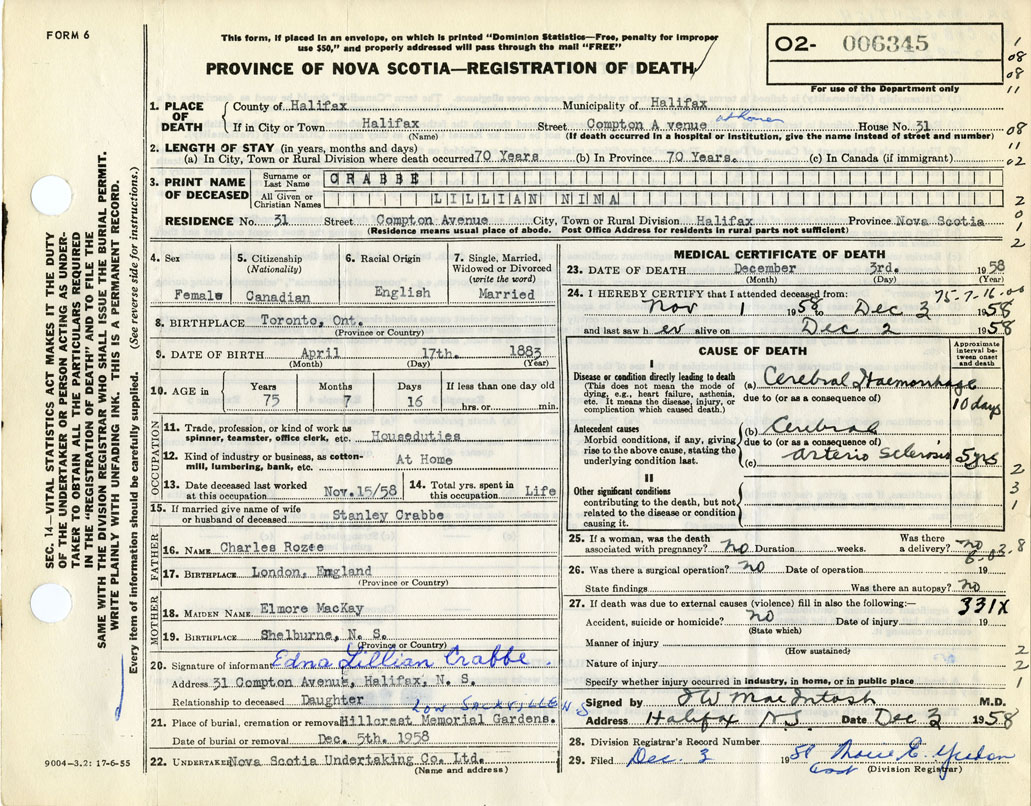 FORM 6
This form, if placed in an envelope, on which is printed "Dominion Statistics—Free, penalty for improper
use $50," and properly addressed will pass through the mail "FREE"
PROVINCE OF NOVA SCOTIA—REGISTRATION OF DEATH
02- 006345
For use of the Department only
1. PLACE OF DEATH
County of Halifax Municipality of Halifax
If in City or Town Halifax Street Compton Avenue at home House No. 31
(Name) (If death occurred in a hospital or institution, give the name instead of street and number)
2. LENGTH OF STAY (in years, months and days)
(a) In City, Town or Rural Division where death occurred 70 Years (b) In Province 70 Years. (c) In Canada (if immigrant)
3. PRINT NAME OF DECEASED
Surname or Last Name CRABBE
All Given or Christian Names LILLIAN NINA
RESIDENCE No. 31 Street Compton Avenue City, Town or Rural Division Halifax Province Nova Scotia
(Residence means usual place of abode. Post Office Address for residents in rural parts not sufficient)
4. Sex
Female
5. Citizenship
(Nationality)
Canadian
6. Racial Origin
English
7. Single, Married, Widowed or Divorced
(write the word)
Married
8. BIRTHPLACE Toronto, Ont.
(Province or Country)
9. DATE OF BIRTH April 17th. 1883
(Month) (Day) (Year)
10. AGE in Years Months Days If less than one day old
75 7 16 hrs. or min.
OCCUPATION
11. Trade, profession, or kind of work as
spinner, teamster, office clerk, etc. Houseduties
12. Kind of industry or business, as cotton-
mill, lumbering, bank, etc. At Home
13. Date deceased last worked
at this occupation Nov.15/58
14. Total yrs. spent in
this occupation Life
15. If married give name of wife
or husband of deceased Stanley Crabbe
FATHER
16. NAME Charles Rozee
17. BIRTHPLACE London, England
(Province or Country)
MOTHER
18. MAIDEN NAME Elmore MacKay
19. BIRTHPLACE Shelburne, N. S.
(Province or Country)
20. Signature of informant Edna Lillian Crabbe.
Address 31 Compton Avenue, Halifax, N. S.
Relationship to deceased Daughter
Low Sackville N S
21. Place of burial, cremation or removal Hillcrest Memorial Gardens.
Date of burial or removal Dec. 5th. 1958
22. UNDERTAKER Nova Scotia Undertaking Co. Ltd.
(Name and address)
MEDICAL CERTIFICATE OF DEATH
23. DATE OF DEATH December 3rd. 1958
(Month) (Day) (Year)
75-7-16-00
24. I HEREBY CERTIFY that I attended deceased from:
Nov 1 1958 to Dec 3 1958
and last saw her alive on Dec 2 1958
CAUSE OF DEATH
Approximate interval between onset and death
I
Disease or condition directly leading to death
(This does not mean the mode of
dying, e.g., heart failure, asthenia,
etc. It means the disease, injury, or
complication which caused death.)
(a) Cerebral Haemorrhage
due to (or as a consequence of) 10 days
Antecedent causes
Morbid conditions, if any, giving
rise to the above cause, stating the
underlying condition last.
(b) Cerebral
due to (or as a consequence of)
(c) arterio sclerosis 5 yrs
II
Other significant conditions
contributing to the death, but not
related to the disease or condition
causing it.
25. If a woman, was the death
associated with pregnancy? no Duration weeks. Was there
a delivery? no
26. Was there a surgical operation? no Date of operation 19
State findings Was there an autopsy? no
27. If death was due to external causes (violence) fill in also the following:— 331X
Accident, suicide or homicide? no Date of injury 19
(State which)
Manner of injury
(How sustained)
Nature of injury
Specify whether injury occurred in industry, in home, or in public place
Signed by J W MacIntosh M.D.
Address Halifax NS Date Dec 3 1958
28. Division Registrar's Record Number
29. Filed Dec. 3 1958
(Division Registrar)
SEC. 14—VITAL STATISTICS ACT MAKES IT THE DUTY
OF THE UNDERTAKER OR PERSON ACTING AS UNDER-
TAKER TO OBTAIN ALL THE PARTICULARS REQUIRED
IN THE "REGISTRATION OF DEATH" AND TO FILE THE
SAME WITH THE DIVISION REGISTRAR WHO SHALL ISSUE THE BURIAL PERMIT.
WRITE PLAINLY WITH UNFADING INK. THIS IS A PERMANENT RECORD.
Every item of information should be carefully supplied. (See reverse side for instructions.)
9004-3.2: 17-6-55
1
08
08
11
08
11
02
2
0
1
2
2
3
1
8
2
2
1